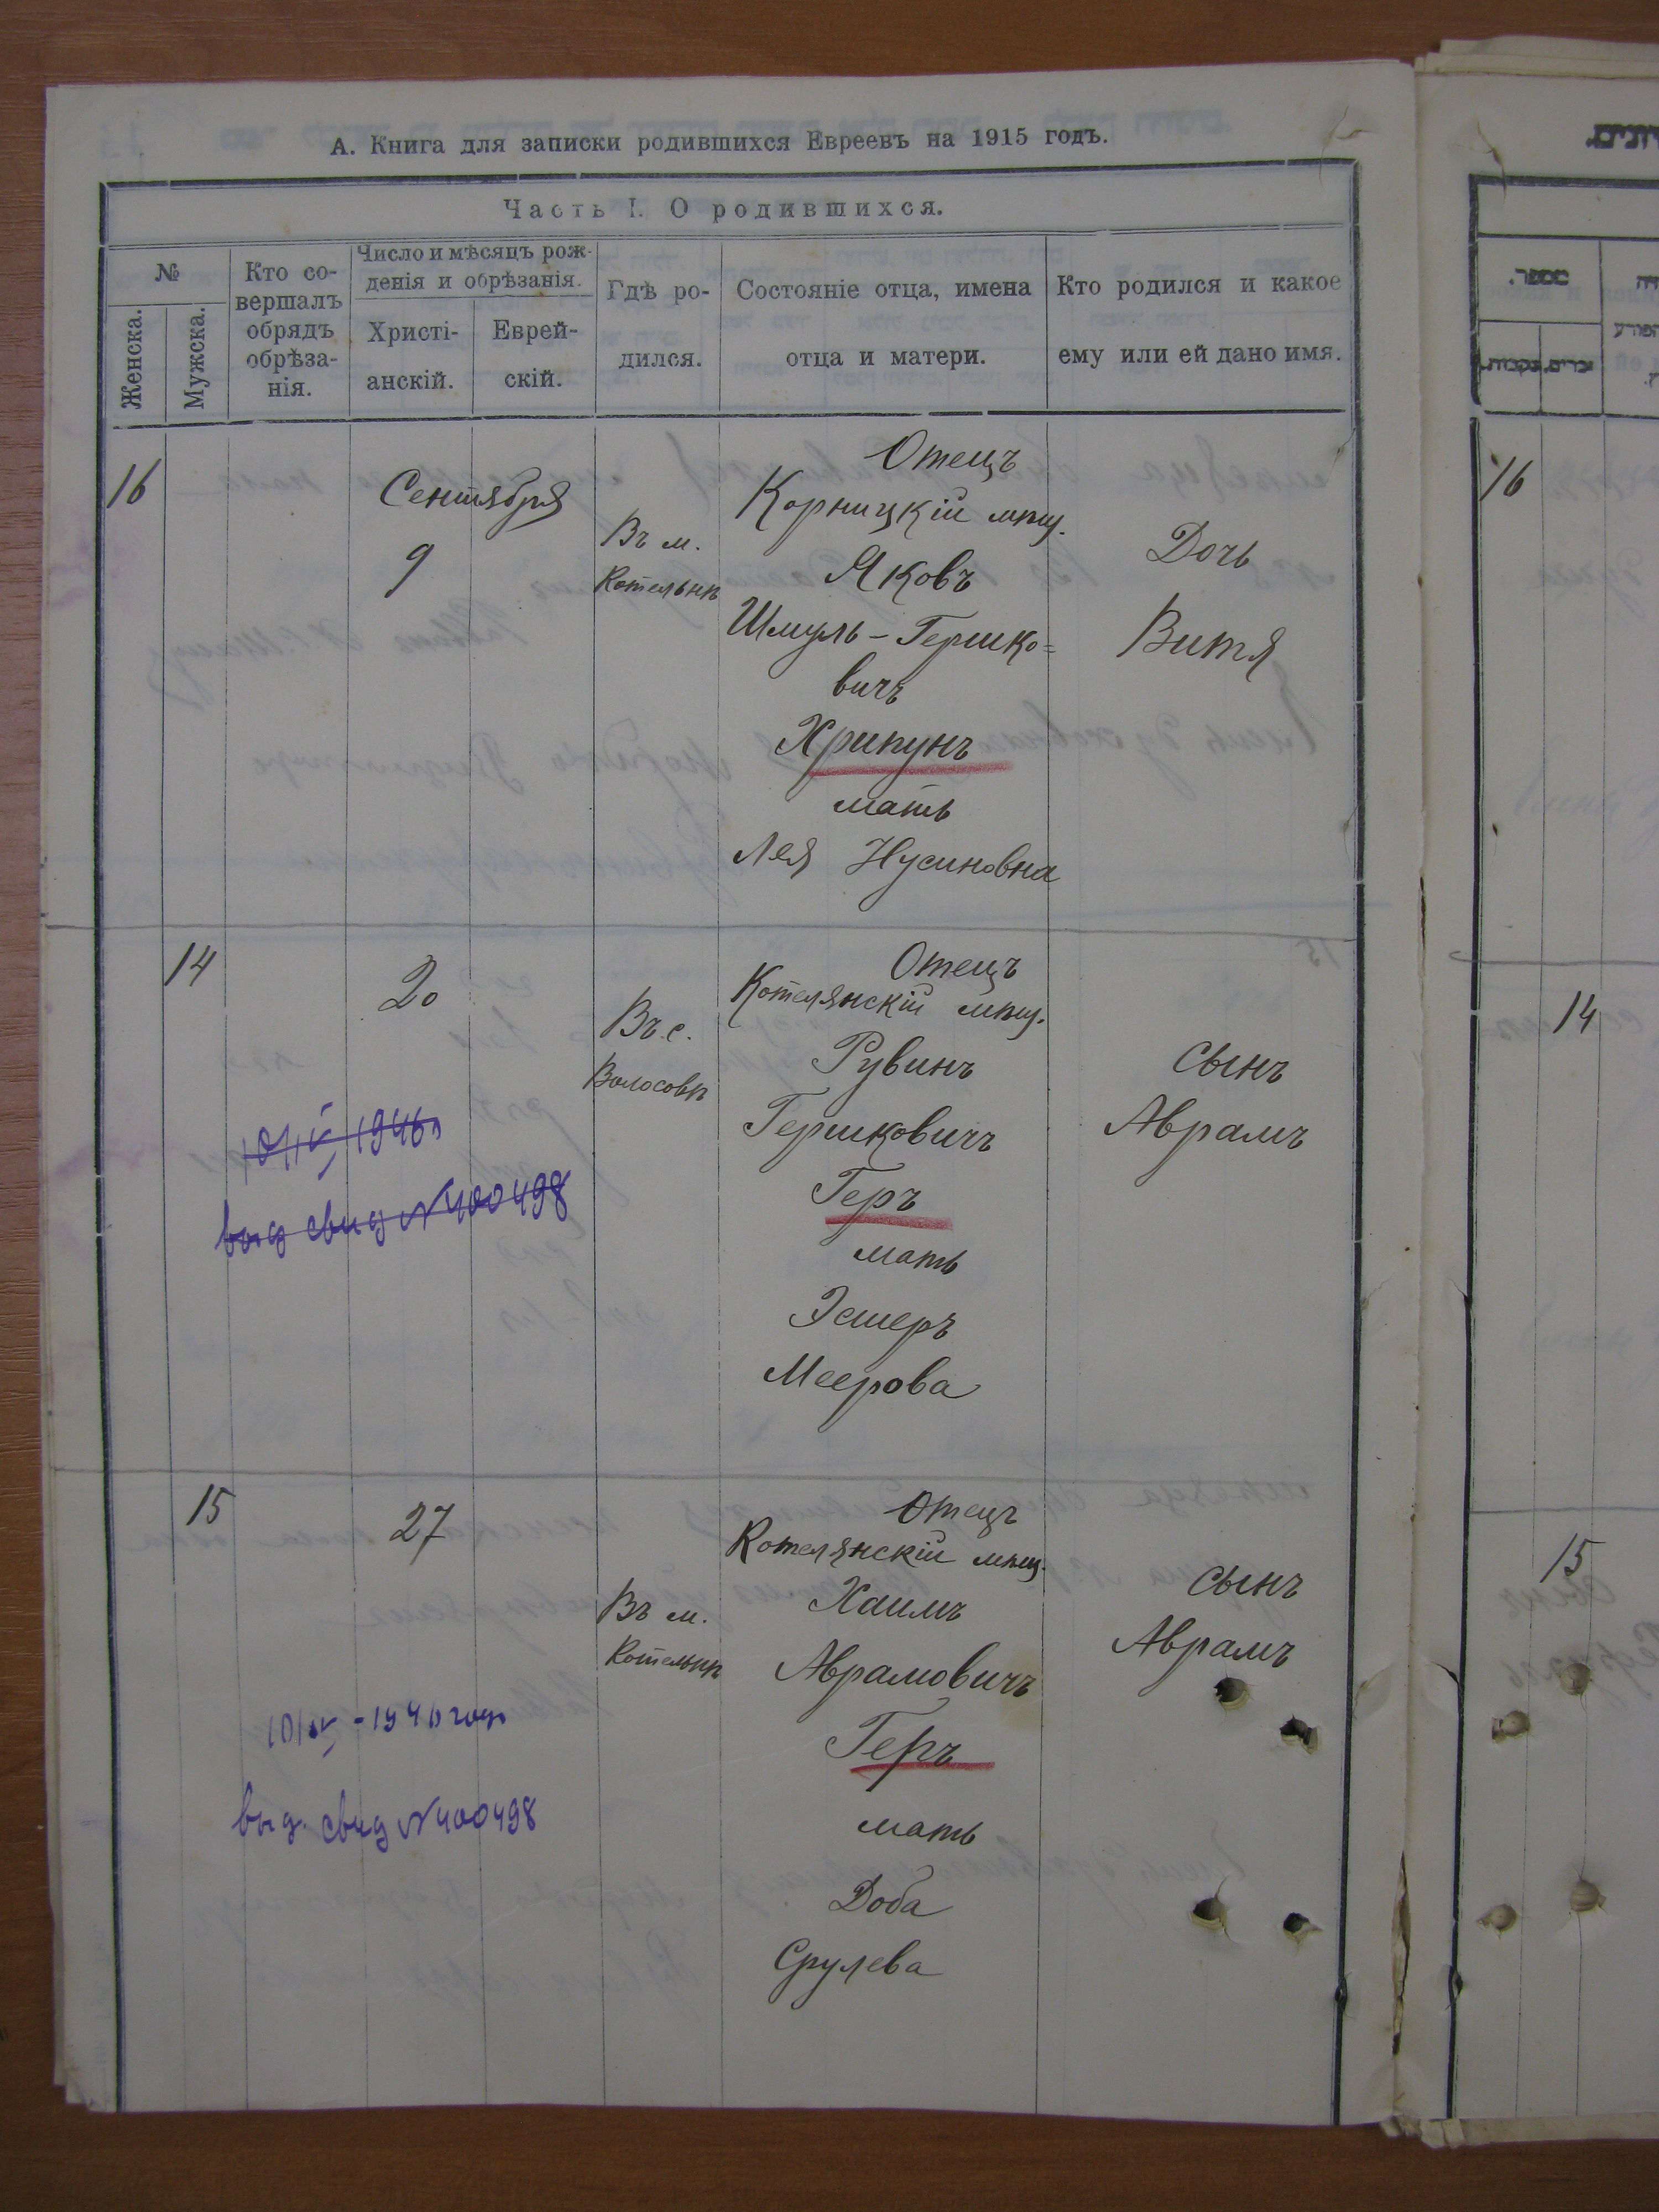 А. Книга для записки родившихся Евреевъ на 1915 годъ.
Часть I. О родившихся.
№
Женска.
Мужска.
Кто со-
вершалъ
обрядъ
обрѣза-
нія.
Число и мѣсяцъ рож-
денія и обрѣзанія.
Христі-
анскій.
Еврей-
скій.
Гдѣ ро-
дился.
Состояніе отца, имена
отца и матери.
Кто родился и какое
ему или ей дано имя.
מספר.
זכרים.
נקבות.
16
Сентября
9
Въ м.
Котельнѣ
Отецъ
Корницкій мѣщ.
Яковъ
Шмуль-Гершко=
вичъ
Хрипунъ
мать
Лея Нусиновна
Дочь
Витя
16
14
20
Въ с.
Волосовѣ
Отецъ
Котелянскій мѣщ.
Рувинъ
Гершковичъ
Геръ
мать
Эстеръ
Меерова
сынъ
Аврамъ
выд свид №400498
14
15
27
Въ м.
Котельнѣ
Отецъ
Котелянскій мѣщ.
Хаимъ
Аврамовичъ
Геръ
мать
Доба
Срулева
сынъ
Аврамъ
выд. свид №400498
15